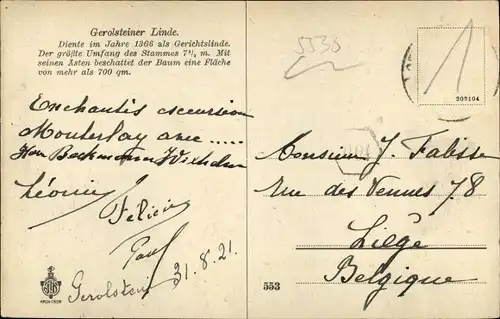 Gerolsteiner Linde.
Diente im Jahre 1366 als Gerichtslinde.
Der größte Umfang des Stammes 7½ m. Mit
seinen Ästen beschattet der Baum eine Fläche
von mehr als 700 qm.
5338
202104
Enchantés excursion
avec .....
Herr Beckmann
Léonie
Félicie
Paul
Gerolstein 31.8.21.
Monsieur J. Falisse
Rue des Vennes 78
Liège
Belgique
553